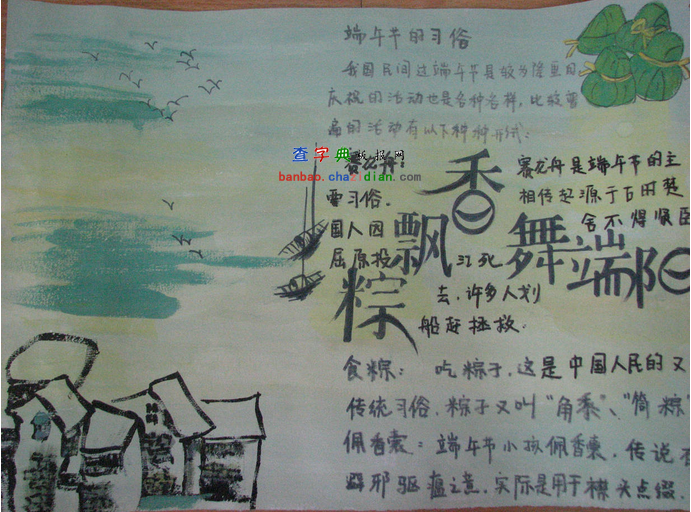 端午节的习俗
我国民间过端午节是较为隆重的
庆祝的活动也是各种各样，比较普
遍的活动有以下种种形式：
查字典 板报网
banbao.chazidian.com
赛龙舟：
赛龙舟是端午节的主
要习俗。
相传起源于古时楚
国人因
舍不得贤臣
屈原投
江死
去，许多人划
船赶拯救。
香飘舞端阳
粽
食粽： 吃粽子，这是中国人民的又
传统习俗，粽子又叫“角黍”、“筒粽”
佩香囊：端午节小孩佩香囊，传说有
辟邪驱瘟之意，实际是用于襟头点缀，